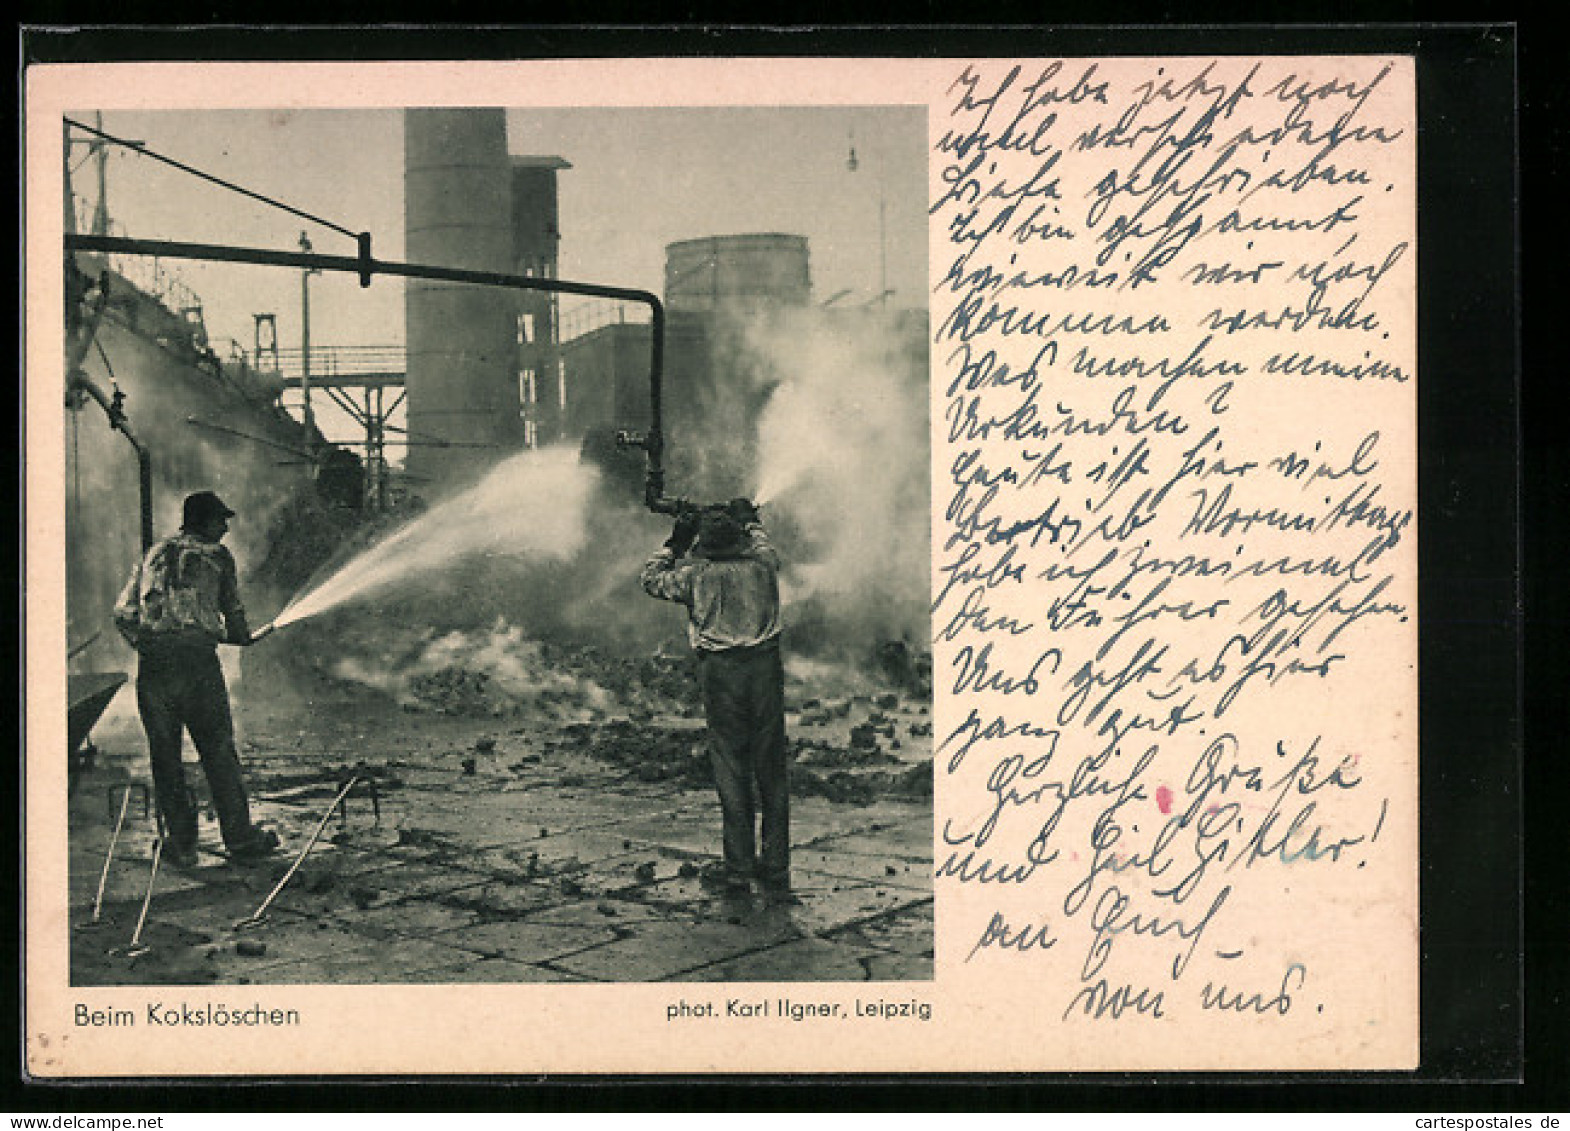 Ich habe jetzt noch
viel verschiedene
Briefe geschrieben.
Ich bin gespannt,
wieweit wir noch
kommen werden.
Was machen meine
Urkunden?
Heute ist hier viel
Betrieb Vormittags
habe ich zweimal
den Führer gesehen.
Uns geht es hier
ganz gut.
Herzliche Grüße
und Heil Hitler!
an Euch
von uns.
Beim Kokslöschen
phot. Karl Ilgner, Leipzig
www.delcampe.net
cartespostales de